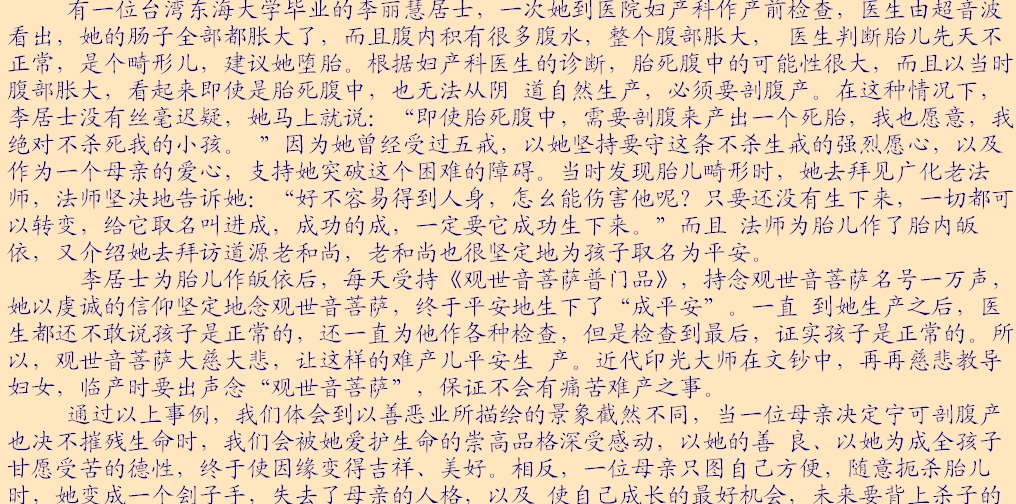 有一位台湾东海大学毕业的李丽慧居士，一次她到医院妇产科作产前检查，医生由超音波
看出，她的肠子全部都胀大了，而且腹内积有很多腹水，整个腹部胀大， 医生判断胎儿先天不
正常，是个畸形儿，建议她堕胎。根据妇产科医生的诊断，胎死腹中的可能性很大，而且以当时
腹部胀大，看起来即使是胎死腹中，也无法从阴 道自然生产，必须要剖腹产。在这种情况下，
李居士没有丝毫迟疑，她马上就说：“即使胎死腹中，需要剖腹来产出一个死胎，我也愿意，我
绝对不杀死我的小孩。 ”因为她曾经受过五戒，以她坚持要守这条不杀生戒的强烈愿心，以及
作为一个母亲的爱心，支持她突破这个困难的障碍。当时发现胎儿畸形时，她去拜见广化老法
师，法师坚决地告诉她：“好不容易得到人身，怎么能伤害他呢？只要还没有生下来，一切都可
以转变，给它取名叫进成，成功的成，一定要它成功生下来。”而且 法师为胎儿作了胎内皈
依，又介绍她去拜访道源老和尚，老和尚也很坚定地为孩子取名为平安。
李居士为胎儿作皈依后，每天受持《观世音菩萨普门品》，持念观世音菩萨名号一万声，
她以虔诚的信仰坚定地念观世音菩萨，终于平安地生下了“成平安”。一直 到她生产之后，医
生都还不敢说孩子是正常的，还一直为他作各种检查，但是检查到最后，证实孩子是正常的。所
以，观世音菩萨大慈大悲，让这样的难产儿平安生 产。近代印光大师在文钞中，再再慈悲教导
妇女，临产时要出声念“观世音菩萨”，保证不会有痛苦难产之事。
通过以上事例，我们体会到以善恶业所描绘的景象截然不同，当一位母亲决定宁可剖腹产
也决不摧残生命时，我们会被她爱护生命的崇高品格深受感动，以她的善 良、以她为成全孩子
甘愿受苦的德性，终于使因缘变得吉祥、美好。相反，一位母亲只图自己方便，随意扼杀胎儿
时，她变成一个刽子手，失去了母亲的人格，以及 使自己成长的最好机会，未来要背上杀子的